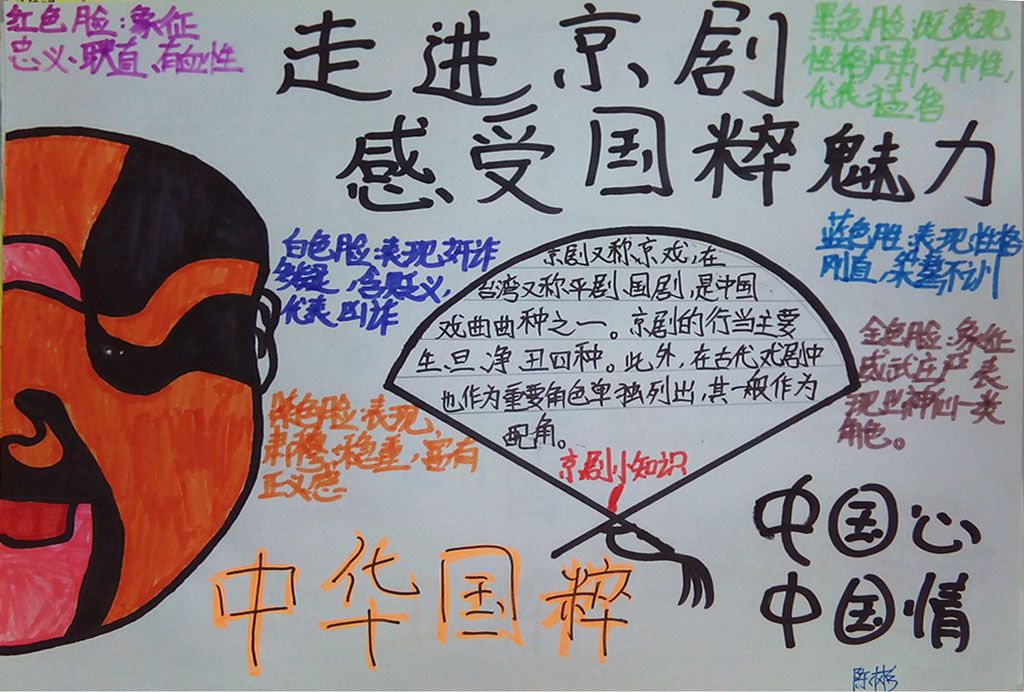 红色脸:象征
忠义、耿直、有血性
走进京剧
感受国粹魅力
黑色脸:既表现
性格严肃,
代表猛智
白色脸:表现奸诈
多疑,含贬义,
代表凶诈
京剧又称京戏,在
台湾又称平剧、国剧,是中国
戏曲曲种之一。京剧的行当主要
生、旦、净、丑四种。此外,在古代戏剧中
也作为重要角色单独列出,其一般作为
配角。
京剧小知识
蓝色脸:表现性格
刚直,桀骜不训
金色脸:象征
威武庄严 表
现 神仙一类
角色。
紫色脸:表现
肃穆、稳重,富有
正义感
中华国粹
中国心
中国情
陈彬